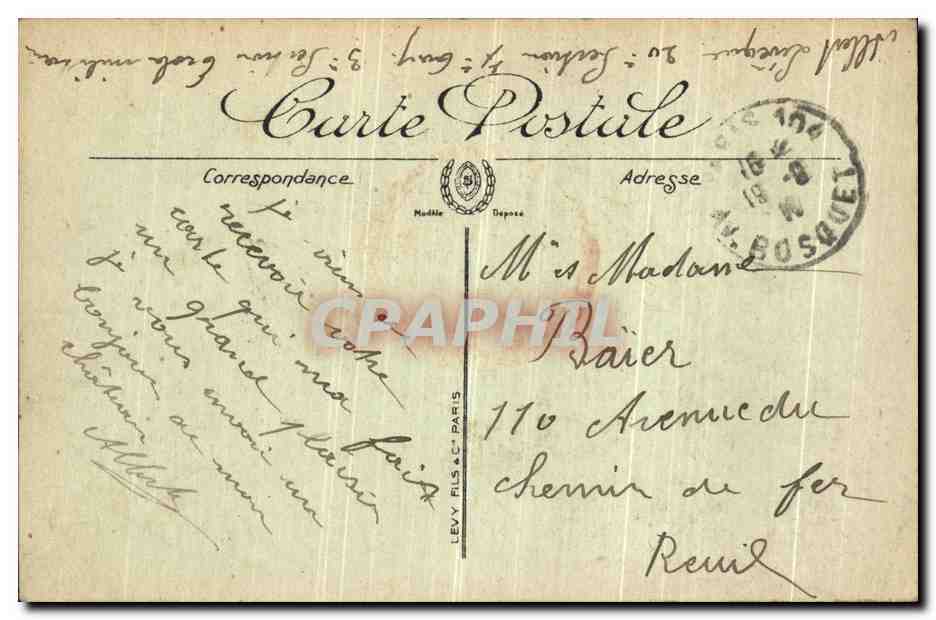 Albert Lévêque 20e Section 7e Comp. 3e Section École
Carte Postale
Correspondance
Adresse
Modèle Déposé
PARIS 104
AV. BOSQUET
je viens de
recevoir votre
carte qui ma fait
un grand plaisir
je vous envoi un
bonjour de mon
château
Albert
M et Madame
Baïer
110 Avenue du
chemin de fer
Reuil
LEVY FILS & Cie PARIS
CPAPHIL